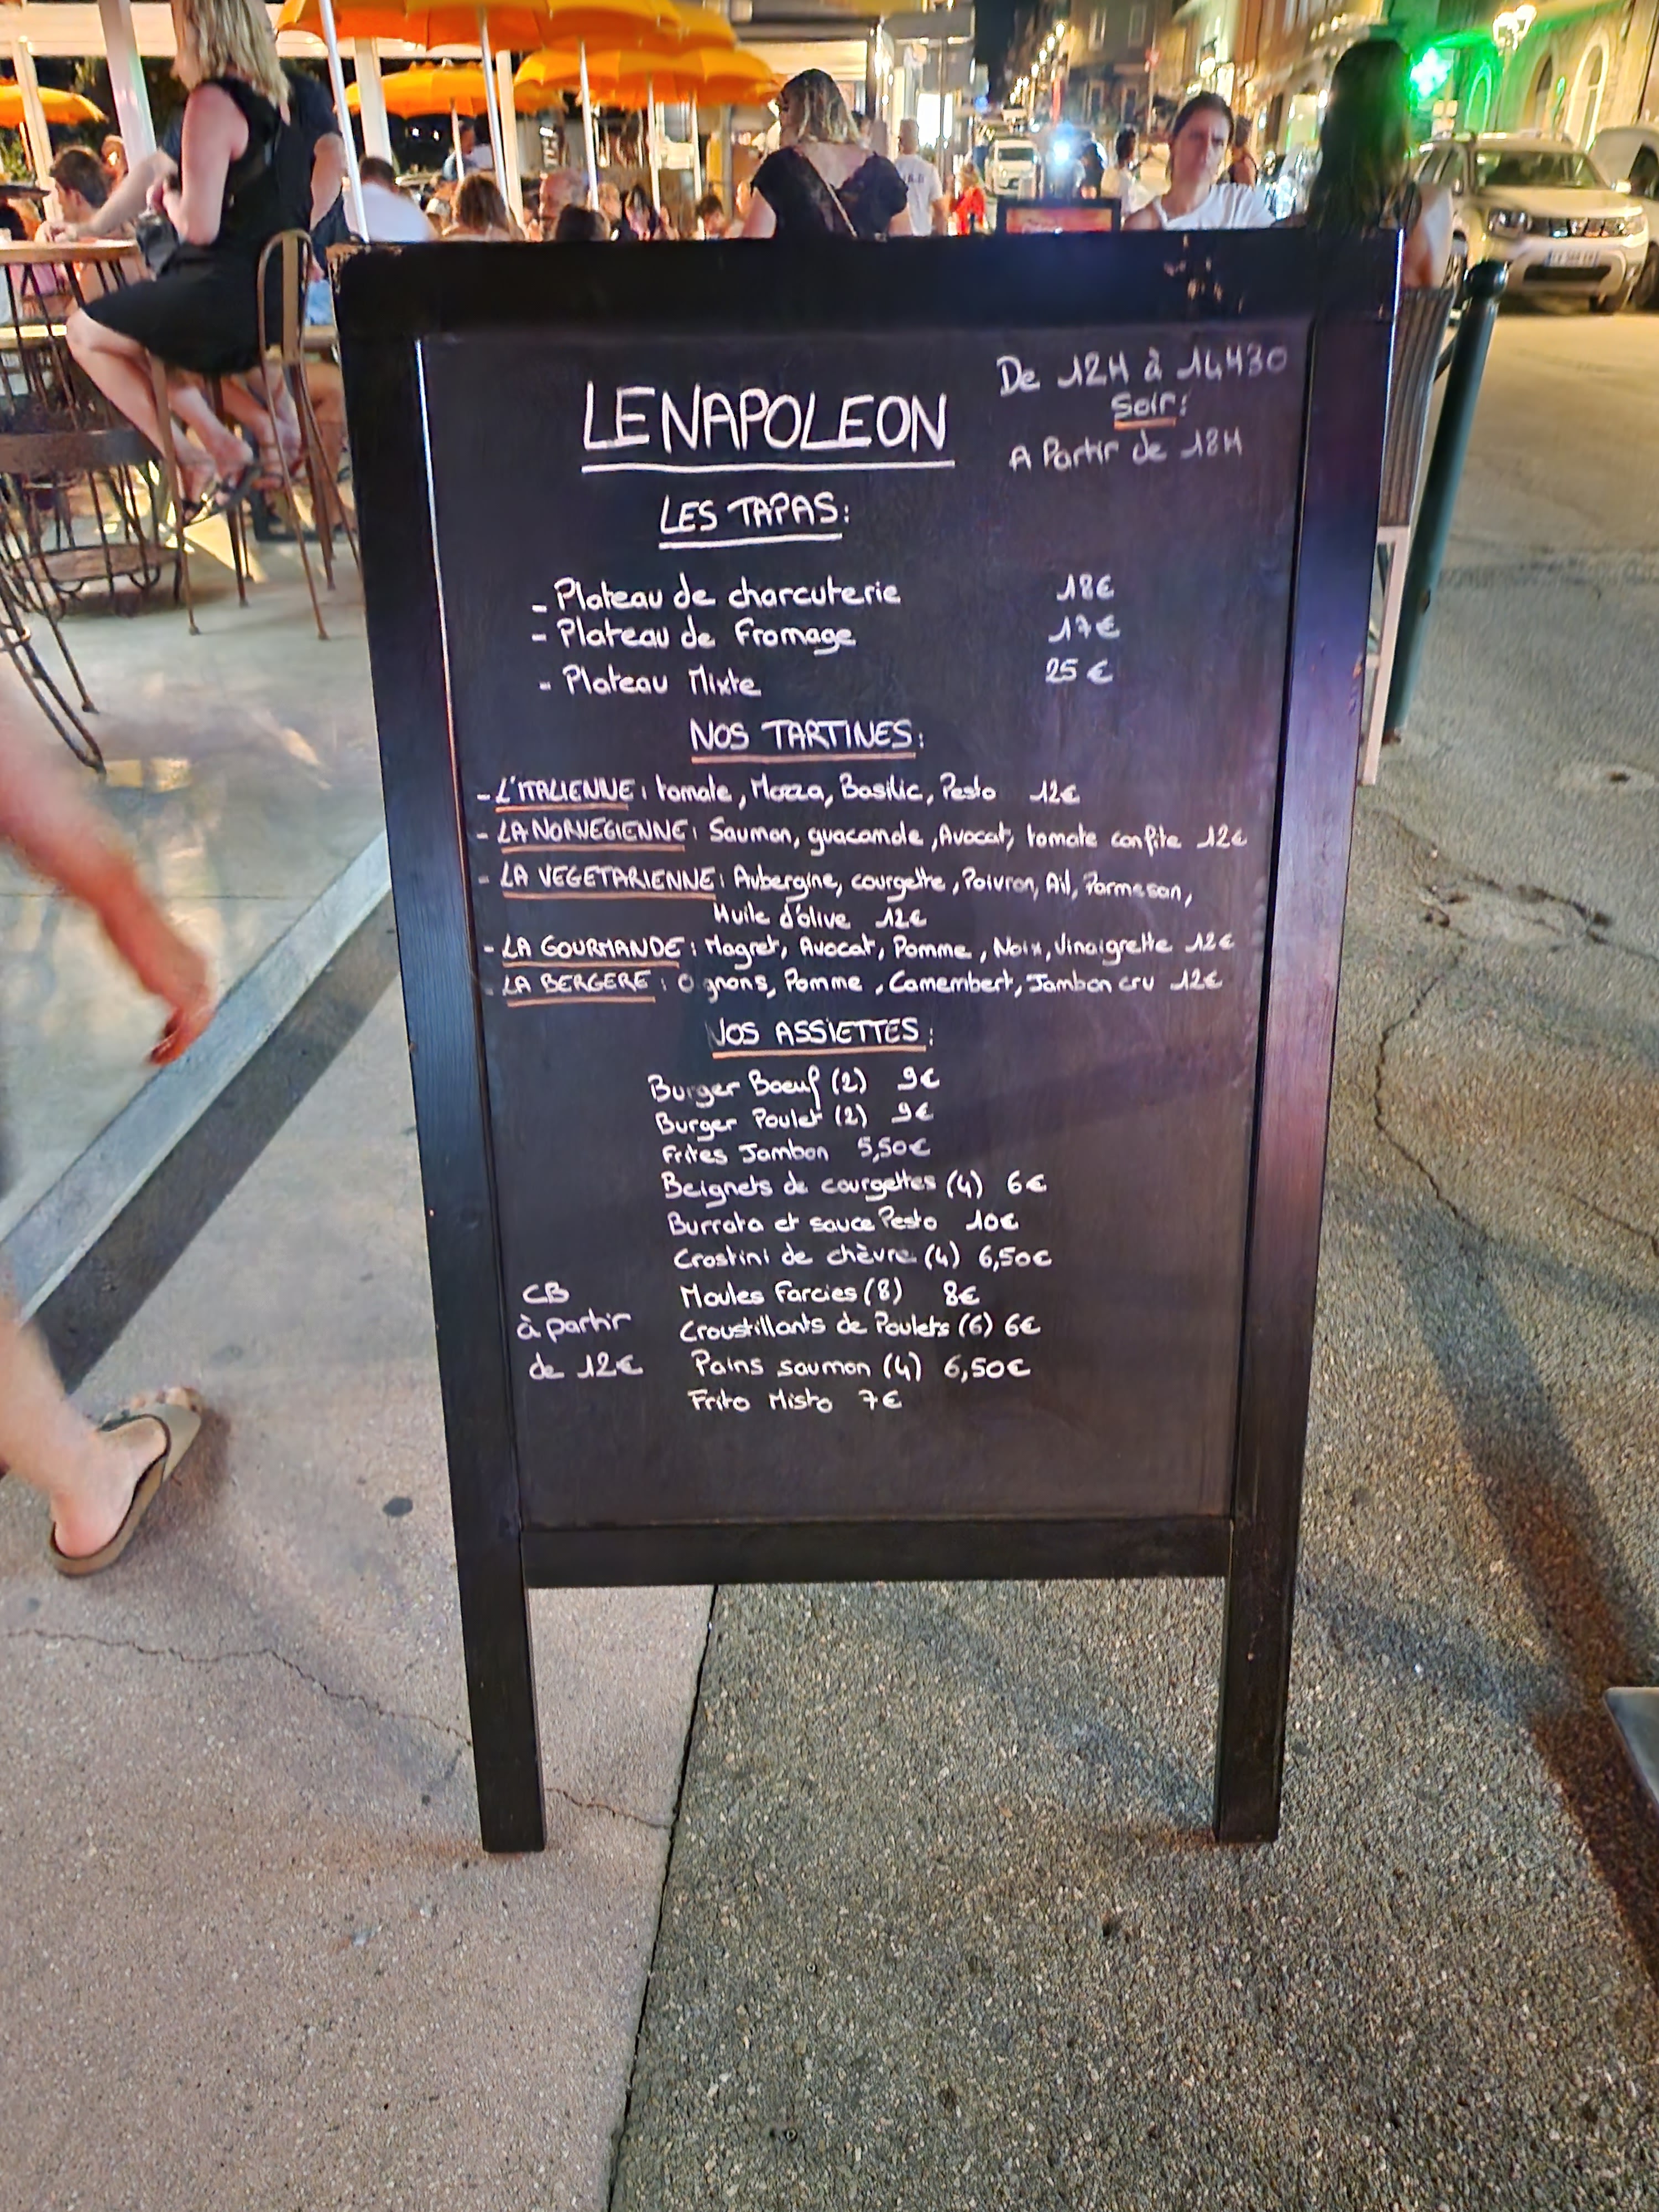 LE NAPOLEON
De 12H à 14H30
Soir:
A Partir de 18H
LES TAPAS:
- Plateau de charcuterie 18€
- Plateau de Fromage 17€
- Plateau Mixte 25€
NOS TARTINES:
- L'ITALIENNE: tomate, Mozza, Basilic, Pesto 12€
- LA NORVEGIENNE: Saumon, guacamole, Avocat, tomate confite 12€
- LA VEGETARIENNE: Aubergine, courgette, Poivron, Ail, Parmesan,
Huile d'olive 12€
- LA GOURMANDE: Magret, Avocat, Pomme, Noix, Vinaigrette 12€
- LA BERGERE: Ognons, Pomme, Camembert, Jambon cru 12€
NOS ASSIETTES:
Burger Boeuf (2) 9€
Burger Poulet (2) 9€
Frites Jambon 5,50€
Beignets de courgettes (4) 6€
Burrata et sauce Pesto 10€
Crostini de chèvre (4) 6,50€
Moules Farcies (8) 8€
Croustillants de Poulets (6) 6€
Pains saumon (4) 6,50€
Frito Misto 7€
CB
à partir
de 12€